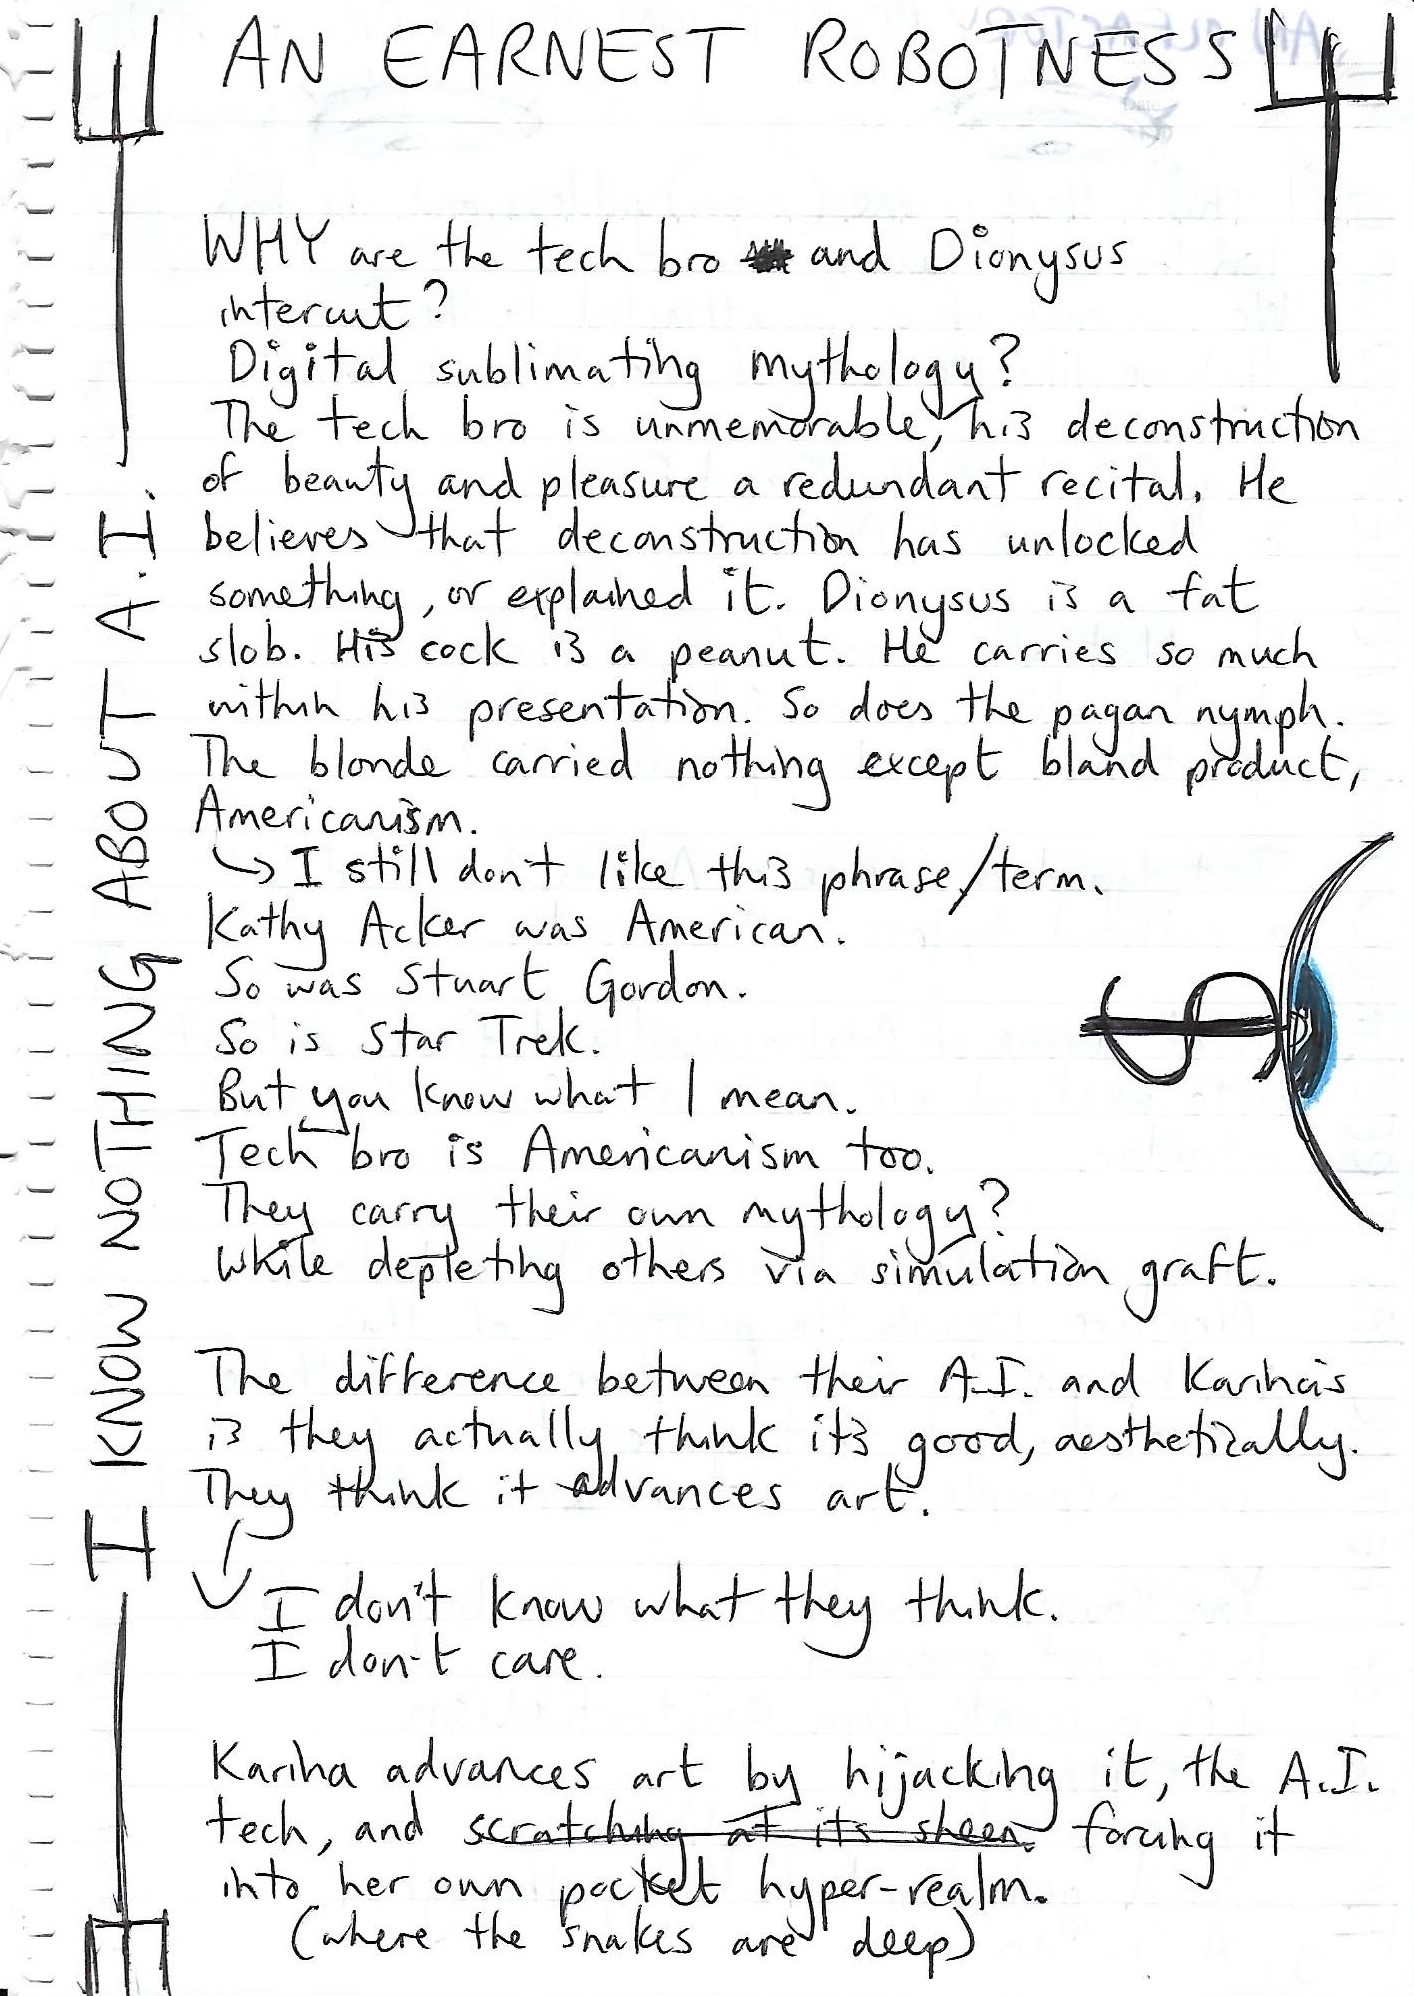 AN EARNEST ROBOTNESS
I KNOW NOTHING ABOUT A.I.
WHY are the tech bro and Dionysus
intercut?
Digital sublimating mythology?
The tech bro is unmemorable, his deconstruction
of beauty and pleasure a redundant recital. He
believes that deconstruction has unlocked
something, or explained it. Dionysus is a fat
slob. His cock is a peanut. He carries so much
within his presentation. So does the pagan nymph.
The blonde carried nothing except bland product,
Americanism.
↳ I still don't like this phrase/term.
Kathy Acker was American.
So was Stuart Gordon.
So is Star Trek.
But you know what I mean.
Tech bro is Americanism too.
They carry their own mythology?
While depleting others via simulation graft.
$
The difference between their A.I. and Kariha's
is they actually think it's good, aesthetically.
They think it advances art.
I don't know what they think.
I don't care.
Kariha advances art by hijacking it, the A.I.
tech, and scratching at its sheen. forcing it
into her own pocket hyper-realm.
(where the snakes are deep)